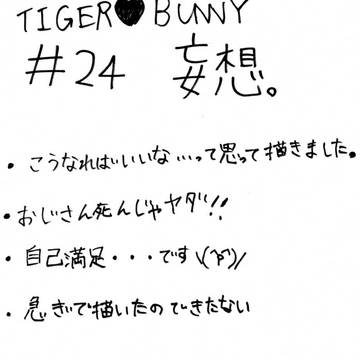 TIGER♥BUNNY
#24 妄想。
・こうなればいいな…って思って描きました。
・おじさん死んじゃヤダ!!
・自己満足・・・です\(^p^)/
・急ぎで描いたのできたない